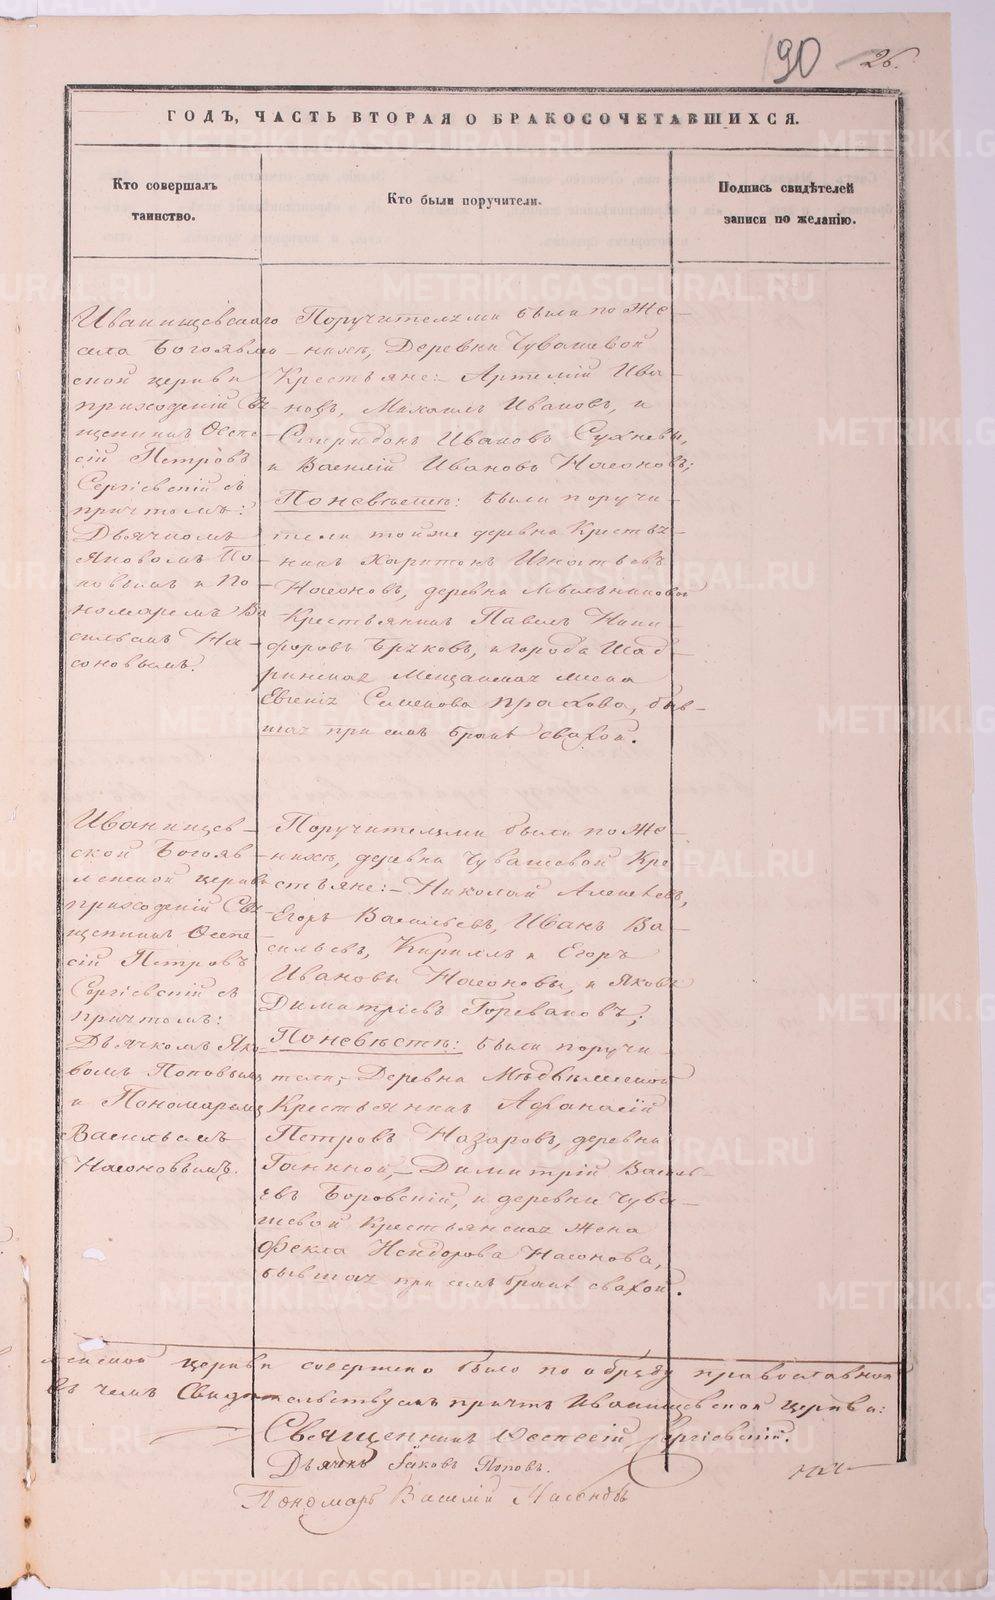 190 26.
ГОДЪ, ЧАСТЬ ВТОРАЯ О БРАКОСОЧЕТАВШИХСЯ.
Кто совершалъ
таинство.
Кто были поручители.
Подпись свидѣтелей
записи по желанію.
Иванищевскаго
села Богоявлен
ской церкви
приходскій Свя
щенникъ Осте
сій Петровъ
Сергіевскій съ
причтомъ:
Дьячкомъ
Яковомъ По-
повымъ и По-
номаремъ Ва
сильемъ На-
соновымъ.
Поручителями были по Же-
нихѣ, Деревни Чувашевой
Крестьяне: Артемій Ива-
новъ, Михаилъ Ивановъ, и
Спиридонъ Ивановъ Сухневы,
и Василій Ивановъ Насоновъ;
По невѣстѣ: были поручи-
тели той же деревни Крестья-
нинъ Харитонъ Игнатьевъ
Насоновъ, деревни Мыльниковой
Крестьянинъ Павелъ Ники-
форовъ, и города Шад-
ринска Мещанская жена
Евгенія Семенова, быв-
шая при семъ бракѣ свахой.
Иванищев-
ской Богояв
ленской церкви
приходскій Свя-
щенникъ
Петровъ
Сергіевскій съ
причтомъ:
Дьячкомъ Яко-
вомъ Поповымъ
и Пономаремъ
Васильемъ
Насоновымъ.
Поручителями были по Же-
нихѣ, деревни Чувашевой Кре
стьяне: Николай Алексѣевъ,
Егоръ Васильевъ, Иванъ Ва-
сильевъ, Кириллъ и Егоръ
Ивановы Насоновы, и Яковъ
Димитріевъ Горевановъ;
По невѣстѣ: были поручи-
тели, Деревни
Крестьянинъ Афанасій
Петровъ Назаровъ, деревни
Ганиной, Димитрій Василь-
евъ Боровскій, и деревни Чува-
шевой Крестьянская жена
Фекла Насонова,
бывшая при семъ бракѣ свахой.
ленской церкви совершено было по обряду православной
въ чемъ Свидѣтельствуемъ причтъ Иванищевской церкви:
Священникъ Сергіевскій.
Дьячекъ Іаковъ Поповъ.
Пономарь Василій Насоновъ
METRIKI.GASO-URAL.RU